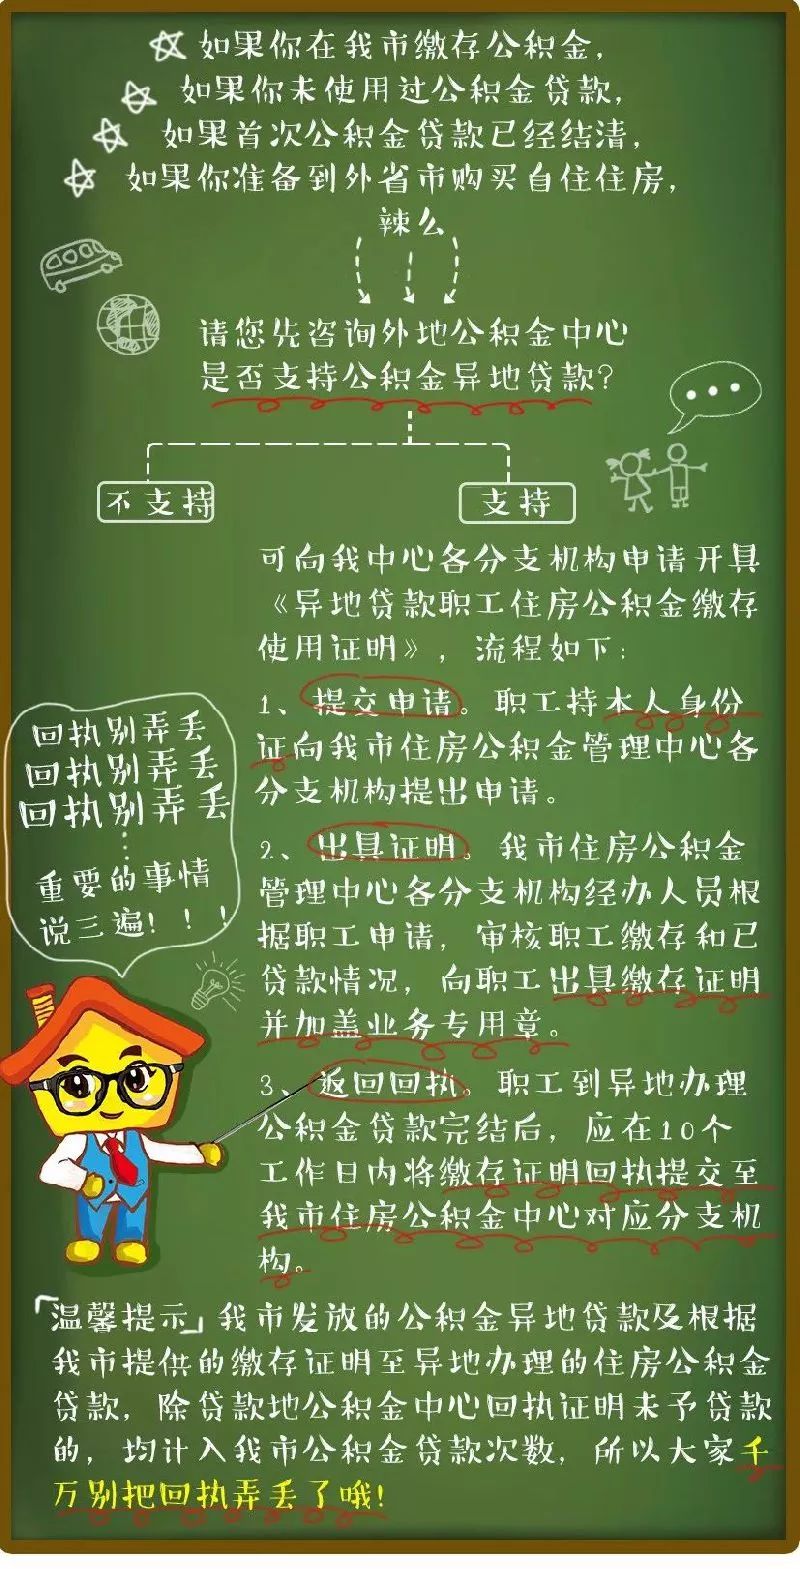 如果你在我市缴存公积金，
如果你未使用过公积金贷款，
如果首次公积金贷款已经结清，
如果你准备到外省市购买自住住房，
辣么
请您先咨询外地公积金中心
是否支持公积金异地贷款？
不支持
支持
可向我中心各分支机构申请开具
《异地贷款职工住房公积金缴存
使用证明》，流程如下：
1、提交申请。职工持本人身份
证向我市住房公积金管理中心各
分支机构提出申请。
回执别弄丢
回执别弄丢
回执别弄丢
⋮
重要的事情
说三遍！！！
2、出具证明。我市住房公积金
管理中心各分支机构经办人员根
据职工申请，审核职工缴存和已
贷款情况，向职工出具缴存证明
并加盖业务专用章。
3、返回回执。职工到异地办理
公积金贷款完结后，应在10个
工作日内将缴存证明回执提交至
我市住房公积金中心对应分支机
构。
「温馨提示」我市发放的公积金异地贷款及根据
我市提供的缴存证明至异地办理的住房公积金
贷款，除贷款地公积金中心回执证明未予贷款
的，均计入我市公积金贷款次数，所以大家千
万别把回执弄丢了哦！